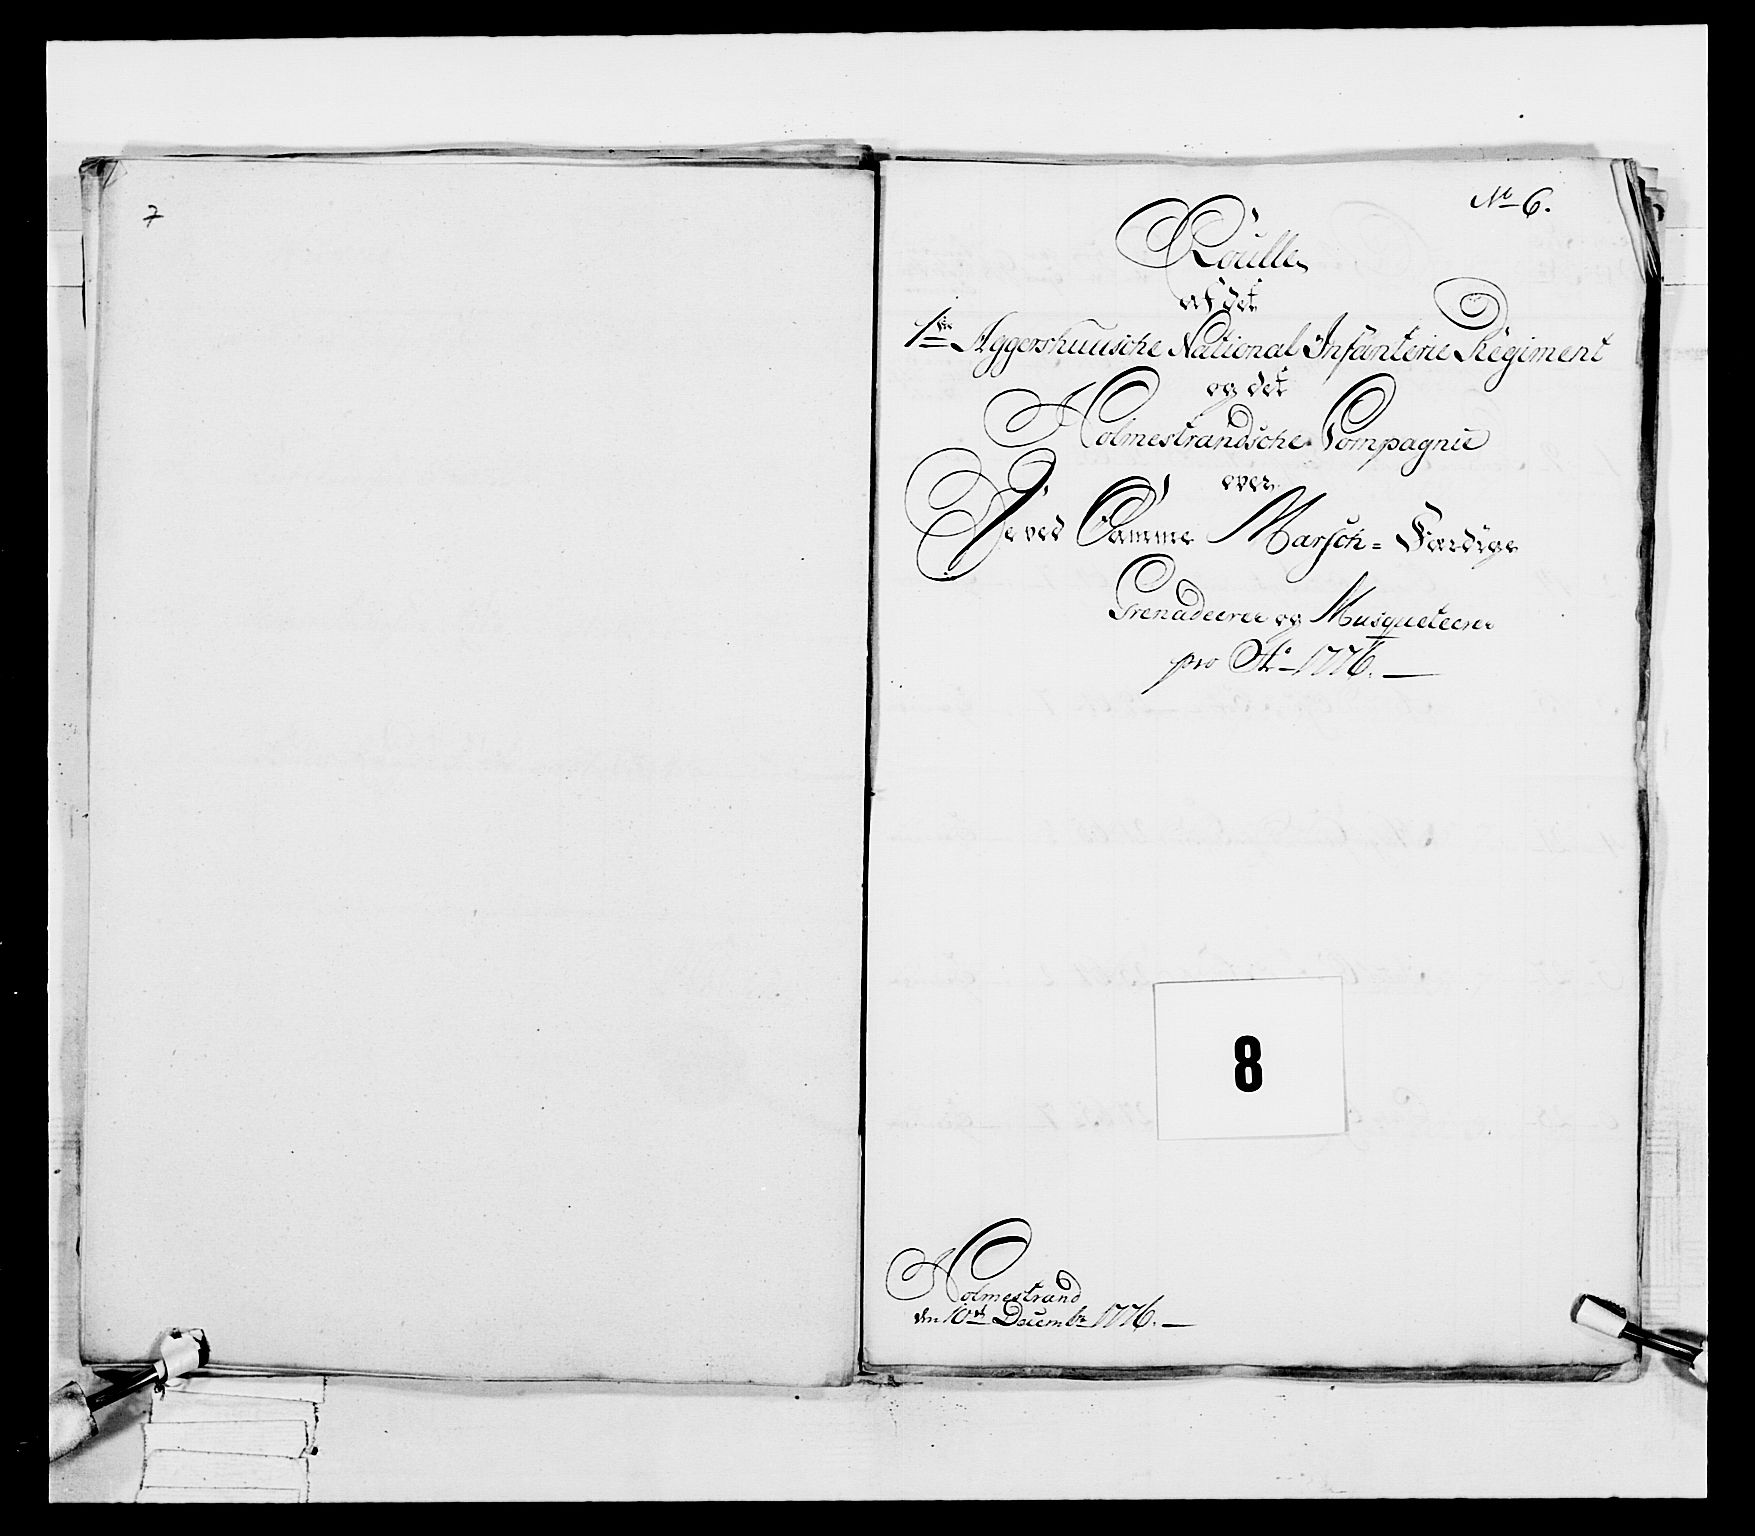 7
No 6.
Roulle
af det
1ste Aggershuusche National Infanterie Regiment
og det
Holmestrandsche Compagnie
over
De ved Samme Marsch= Færdige
Grenadeerer og Musqueteerer
pro Ao 1776.
8
Holmestrand
den 10de Decembr 1776.